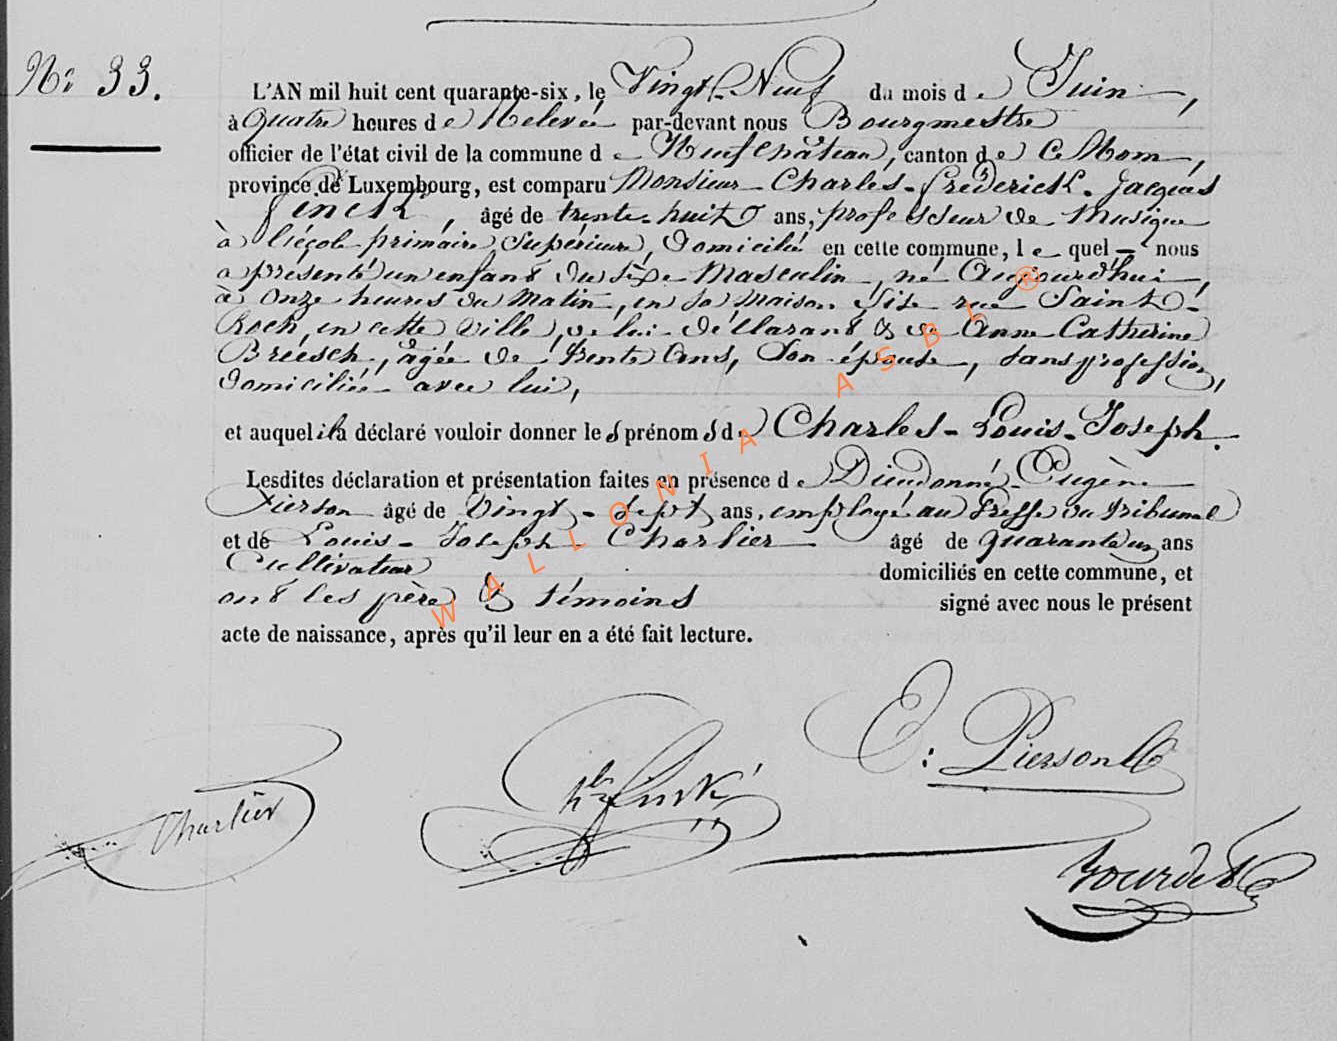 No 33.
L'AN mil huit cent quarante-six, le Vingt-Neuf du mois de Juin,
à Quatre heures de Relevée par-devant nous Bourgmestre
officier de l'état civil de la commune de Neufchâteau, canton de Ce Nom,
province de Luxembourg, est comparu Monsieur Charles-Fréderick-Jacques
Finck, âgé de trente-huit ans, professeur de Musique
à l'école primaire Supérieure, Domicilié en cette commune, le quel nous
a présenté un enfant du sèxe Masculin, né Aujourd'hui,
à Onze heures du Matin, en sa Maison Sise rue Saint-
Roch, en cette Ville, de lui déclarant & de Anne Catherine
Bréesch, âgée de Trente Ans, Son épouse, sans profession,
domiciliée avec lui,
et auquel il a déclaré vouloir donner les prénoms de Charles-Louis-Joseph.
Lesdites déclaration et présentation faites en présence de Dieudonné-Eugène
Pierson âgé de Vingt-Sept ans, employé au Greffe du Tribunal
et de Louis-Joseph Charlier âgé de quarante un ans
Cultivateur domiciliés en cette commune, et
ont les père & témoins signé avec nous le présent
acte de naissance, après qu'il leur en a été fait lecture.
WALLONIA ASBL ®
E: Pierson
Charlier Finck
Bourdet